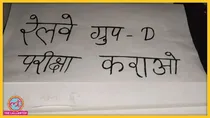 रेलवे ग्रुप - D
परीक्षा कराओ